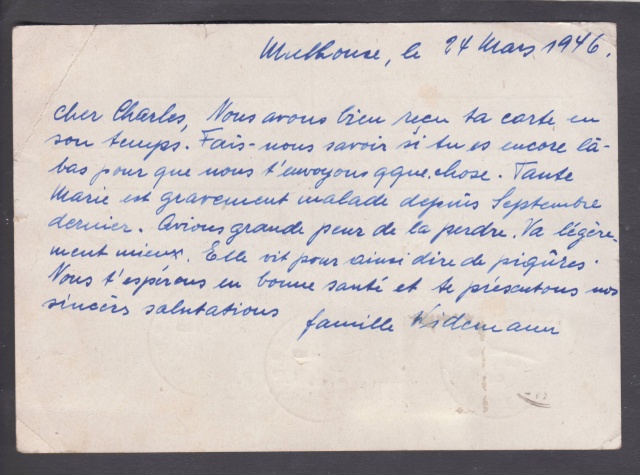 Mulhouse, le 24 Mars 1946.
Cher Charles, Nous avons bien reçu ta carte en
son temps. Fais-nous savoir si tu es encore là-
bas pour que nous t'envoyons qque.chose. Tante
Marie est gravement malade depuis Septembre
dernier. Avions grande peur de la perdre. Va légère-
ment mieux. Elle vit pour ainsi dire de piqûres.
Nous t'espérons en bonne santé et te présentons nos
sincèrs salutations
famille Widemann